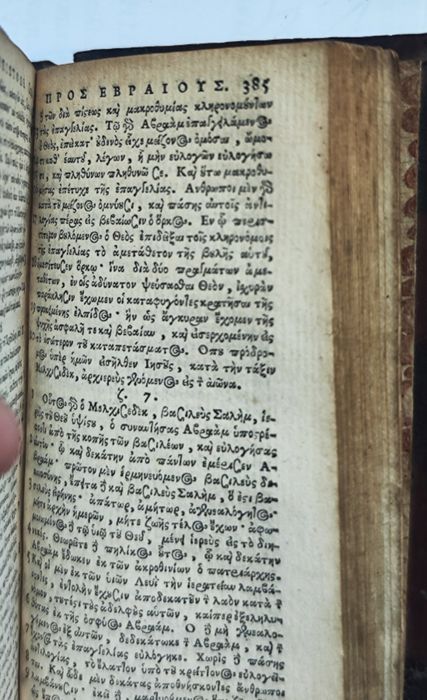 ΠΡΟΣ ΕΒΡΑΙΟΥΣ. 385
τῶν διὰ πίστεως καὶ μακροθυμίας κληρονομούντων
τὰς ἐπαγγελίας. Τῷ γὸ Αβραὰμ ἐπαγγειλάμενος
ὁ Θεὸς, ἐπεὶ κατ' οὐδενὸς εἶχε μείζονος ὀμόσαι, ὤμο-
καθ' ἑαυτοῦ, λέγων, ἦ μὴν εὐλογῶν εὐλογήσω
σε, καὶ πληθύνων πληθυνῶ σε. Καὶ οὕτω μακροθυ-
μήσας ἐπέτυχε τῆς ἐπαγγελίας. Ανθρωποι μὲν γὸ
κατὰ τοῦ μείζονος ὀμνύουσι, καὶ πάσης αὐτοῖς ἀντι-
λογίας πέρας εἰς βεβαίωσιν ὁ ὅρκος. Εν ᾧ περισ-
σότερον βουλόμενος ὁ Θεὸς ἐπιδεῖξαι τοῖς κληρονόμοις
τῆς ἐπαγγελίας τὸ ἀμετάθετον τῆς βουλῆς αὐτοῦ,
ἐμεσίτευσεν ὅρκῳ· ἵνα διὰ δύο πραγμάτων ἀμε-
ταθέτων, ἐν οἷς ἀδύνατον ψεύσασθαι Θεὸν, ἰσχυρὰν
παράκλησιν ἔχωμεν οἱ καταφυγόντες κρατῆσαι τῆς
προκειμένης ἐλπίδος· ἣν ὡς ἄγκυραν ἔχομεν τῆς
ψυχῆς ἀσφαλῆ τε καὶ βεβαίαν, καὶ εἰσερχομένην εἰς
τὸ ἐσώτερον τοῦ καταπετάσματος. Οπου πρόδρο-
μος ὑπὲρ ἡμῶν εἰσῆλθεν Ιησοῦς, κατὰ τὴν τάξιν
Μελχισεδὲκ, ἀρχιερεὺς γενόμενος εἰς τ αἰῶνα.
ζ. 7.
Οὗτος γὸ ὁ Μελχισεδὲκ, βασιλεὺς Σαλὴμ, ἱε-
ρεὺς τοῦ Θεοῦ ὑψίστου, ὁ συναντήσας Αβραὰμ ὑποστρέ-
φοντι ἀπὸ τῆς κοπῆς τῶν βασιλέων, καὶ εὐλογήσας
αὐτόν· ᾧ καὶ δεκάτην ἀπὸ πάντων ἐμέρισεν Α-
βραάμ· πρῶτον μὲν ἑρμηνευόμενος βασιλεὺς δι-
καιοσύνης, ἔπειτα ἢ καὶ βασιλεὺς Σαλὴμ, ὅ ἐστι βα-
σιλεὺς εἰρήνης· ἀπάτωρ, ἀμήτωρ, ἀγενεαλόγητος·
μήτε ἀρχὴν ἡμερῶν, μήτε ζωῆς τέλος ἔχων· ἀφω-
μοιωμένος ἢ τῷ υἱῷ τοῦ Θεοῦ, μένει ἱερεὺς εἰς τὸ διη-
νεκές. Θεωρεῖτε ἢ πηλίκος οὗτος, ᾧ καὶ δεκάτην
Αβραὰμ ἔδωκεν ἐκ τῶν ἀκροθινίων ὁ πατριάρχης.
Καὶ οἱ μὲν ἐκ τῶν υἱῶν Λευὶ τὴν ἱερατείαν λαμβά-
νοντες, ἐντολὴν ἔχουσιν ἀποδεκατοῦν τ λαὸν κατὰ τ
νόμον, τουτέστι τοὺς ἀδελφοὺς αὐτῶν, καίπερ ἐξεληλυ-
θότας ἐκ τῆς ὀσφύος Αβραάμ. Ο ἢ μὴ γενεαλο-
γούμενος ἐξ αὐτῶν, δεδεκάτωκε τ Αβραὰμ, καὶ τ
ἔχοντα τὰς ἐπαγγελίας εὐλόγηκε. Χωρὶς ἢ πάσης
ἀντιλογίας, τὸ ἔλαττον ὑπὸ τοῦ κρείττονος εὐλογεῖ-
ται. Καὶ ὧδε μὲν δεκάτας ἀποθνήσκοντες ἄνθρωποι
λαμβάνουσιν· ἐκεῖ ἢ, μαρτυρούμενος